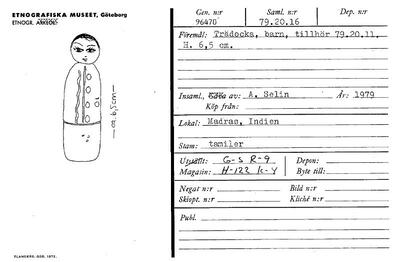 ETNOGRAFISKA MUSEET, Göteborg
ETNOGR. ARKEOL.
ca. 6,5 cm
FLANDERS. GBG. 1972.
Gen. n:r Saml. n:r Dep. n:r
96470 79.20.16
Föremål: Trädocka, barn, tillhör 79.20.11,
H. 6,5 cm.
Insaml., av: A. Selin År: 1979
Köp från:
Lokal: Madras, Indien
Stam: tamiler
Utställt: G-S R-9 Depon:
Magasin: H-122 K-Y Byte till:
Negat n:r Bild n:r
Skiopt. n:r Kliché n:r
Publ.